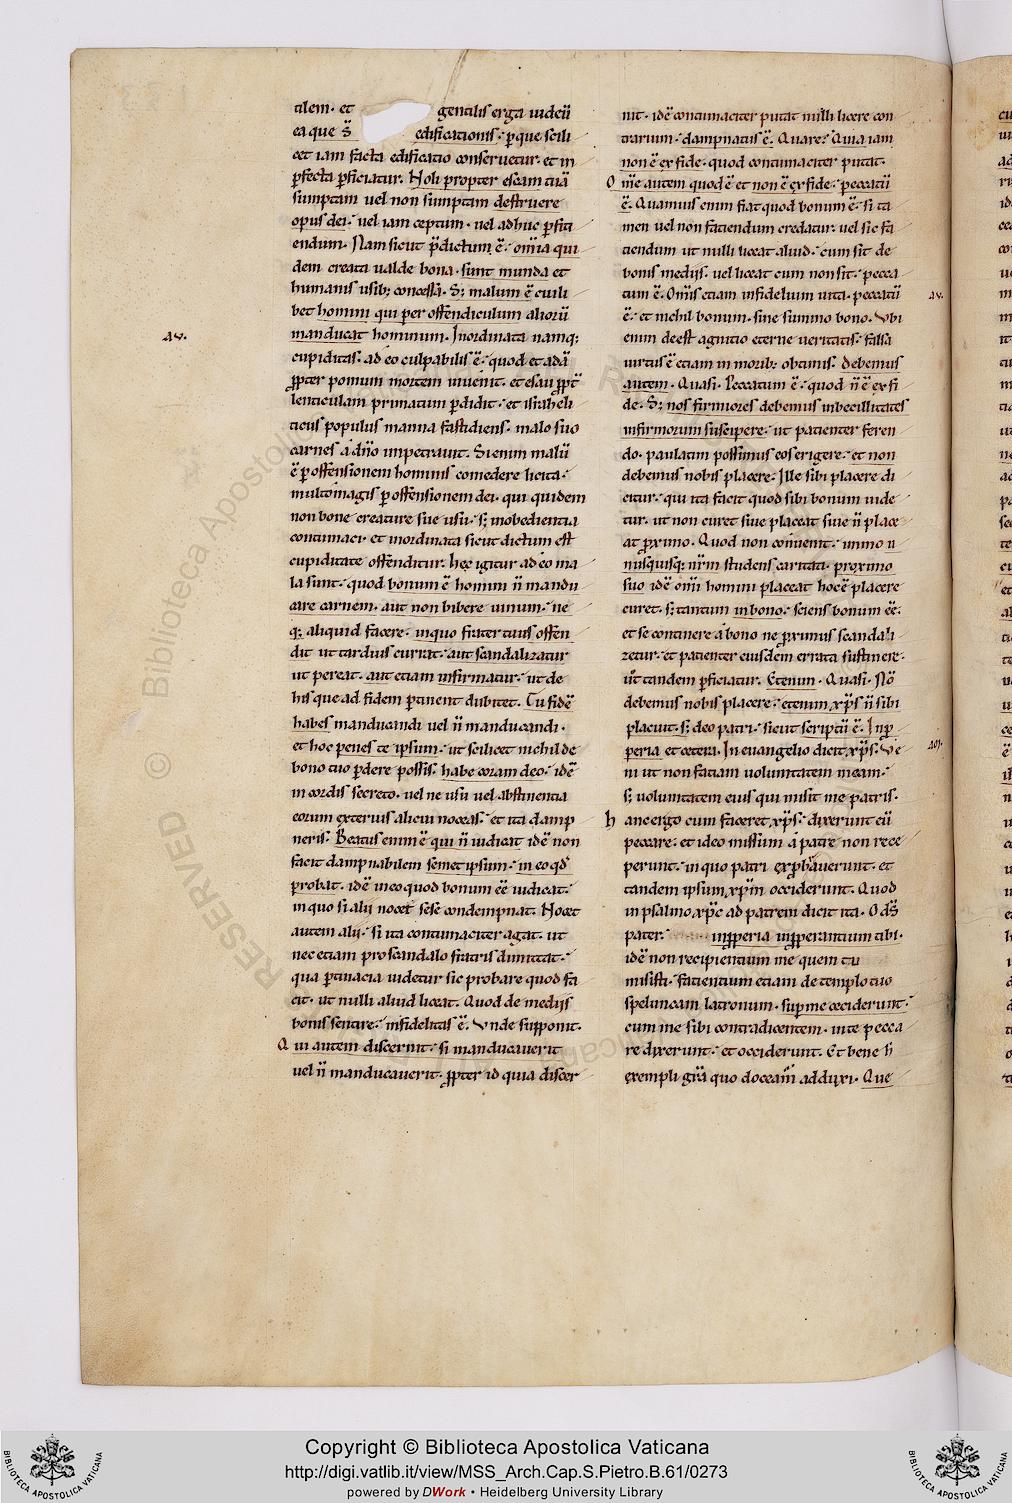 tilem· et gentilis erga iudeū
ea que s̄ edificationis· ꝑque scili
cet iam facta edificatio conseruetur· et in
ꝑfecta ꝑficiatur. Noli propter escam tuā
sumptam uel non sumptam destruere
opus dei· uel iam ceptum· uel adhuc ꝑfiti
endum· Nam sicut p̄dictum ē· om̄ia qui
dem creata ualde bona· sunt munda et
humanis usib; concessa· S; malum ē cuili
bet homini qui per offendiculum aliorū
manducat hominum. Inordinata namq;
cupiditas· ad eo culpabilis ē· quod et adā
ꝓpter pomum mortem inuenit· et esau ꝓpt̄
lenticulam primatum ꝑdidit· et israheli
ticus populus manna fastidiens· malo suo
carnes a dn̄o impetrauit. Si enim malū
ē ꝑ offensionem hominis comedere licita·
multomagis ꝑ offensionem dei· qui quidem
non bone creature sue usu· s; inobedientia
contumaci· et inordinata sicut dictum est
cupiditate offenditur. hec igitur ad eo ma
la sunt· quod bonum ē homini n̄ mandu
care carnem· aut non bibere uinum· ne
q; aliquid facere· inquo frater tuus offen
dit ut tardius currat· aut scandalizatur
ut pereat. aut etiam infirmatur· ut de
his que ad fidem ꝑtinent dubitet. Tu fidē
habes manducandi uel n̄ manducandi·
et hoc penes te ipsum· ut scilicet nichil de
bono tuo ꝑdere possis· habe coram deo· idē
in cordis secreto· uel ne usu uel abstinentia
eorum exterius alicui noceas· et ita damp
neris· Beatus enim ē qui n̄ iudicat idē non
facit dampnabilem semet ipsum· in eo qd̄
probat. idē in eo quod bonum ēē iudicat·
in quo si alii nocet sese condempnat. Nocet
autem alii· si ita contumaciter agat· ut
nec etiam pro scandalo fratris dimittat·
qua ꝑtinacia uidetur sic probare quod fa
cit· ut nulli aliud liceat. Quod de mediis
bonis sentire· infidelitas ē. Vnde supponit·
Qui autem discernit· si manducauerit
uel n̄ manducauerit· ꝓpter id quia discer
nit· idē contumaciter putat nulli licere con
trarium· dampnatus ē. Quare? Quia iam
non ē ex fide· quod contumaciter putat·
Om̄e autem quod ē et non ē ex fide· peccatū
ē. Quamuis enim fiat quod bonum ē· si ta
men uel non faciendum credatur· uel sic fa
ciendum ut nulli liceat aliud· cum sit de
bonis mediis· uel liceat cum non sit· pecca
tum ē. Om̄is etiam infidelium uita· peccatū
ē· et nichil bonum· sine summo bono. Vbi
enim deest agnitio eterne ueritatis· falsa
uirtus ē etiam in morib; obtimis· debemus
autem· Quasi· Peccatum ē· quod n̄ ē ex fi
de· S; nos firmiores debemus inbecillitates
infirmorum suscipere· ut patienter feren
do· paulatim possimus eos erigere· et non
debemus nobis placere· Ille sibi placere di
citur· qui ita facit quod sibi bonum uide
tur· ut non curet siue placeat siue n̄ place
at ꝓximo. Quod non conuenit· immo u
nusquisq; nr̄m studens caritati· proximo
suo idē omī homini placeat hoc ē placere
curet· s; tantum in bono· sciens bonum ēē·
et se continere a bono ne ꝓximus scandali
zetur· et patienter eiusdem errata sustinere·
ut tandem ꝑficiatur. Etenim· Quasi· Nō
debemus nobis placere· etenim xp̄s n̄ sibi
placuit· s; deo patri· sicut scriptū ē. Inp̄
peria et cetera· In euangelio dicit xp̄s· Ve
ni ut non faciam uoluntatem meam·
s; uoluntatem eius qui misit me patris·
hanc ergo cum faceret xp̄s· dixerunt eū
peccare· et ideo missum a patre non rece
perunt· in quo patri exprobauerunt· et
tandem ipsum xp̄m occiderunt. Quod
in psalmo xp̄c ad patrem dicit ita· O ds̄
pater· inꝓperia inꝓperantium tibi·
idē non recipientium me quem tu
misisti· facientium etiam de templo tuo
speluncam latronum· suꝑ me ceciderunt·
cum me sibi contradicentem· in te pecca
re dixerunt· et occiderunt. Et bene h̄
exempli gr̄a quo doceam̄ adduxi· Que
Copyright © Biblioteca Apostolica Vaticana
http://digi.vatlib.it/view/MSS_Arch.Cap.S.Pietro.B.61/0273
powered by DWork • Heidelberg University Library
BIBLIOTECA APOSTOLICA VATICANA
BIBLIOTECA APOSTOLICA VATICANA